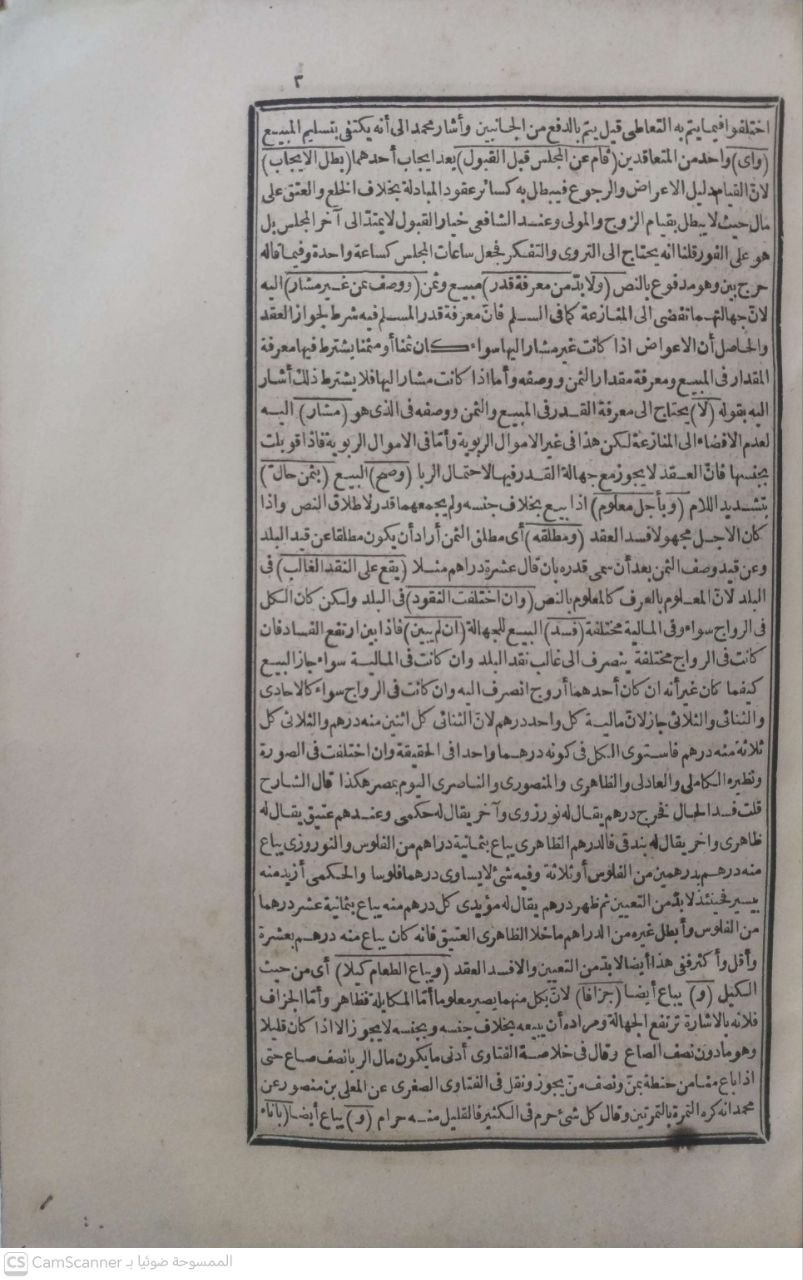 ٣
اختلفوا فيما يتم به التعاطى قيل يتم بالدفع من الجانبين وأشار محمد الى أنه يكتفى بتسليم المبيع
(وأى) واحد من المتعاقدين (قام عن المجلس قبل القبول) بعد ايجاب أحدهما (بطل الايجاب)
لان القيام دليل الاعراض والرجوع فيبطل به كسائر عقود المبادلة بخلاف الخلع والعتق على
مال حيث لا يبطل بقيام الزوج والمولى وعند الشافعى خيار القبول لا يمتد الى آخر المجلس بل
هو على الفور قلنا انه يحتاج الى التروى والتفكر فجعل ساعات المجلس كساعة واحدة وفيما قاله
حرج بين وهو مدفوع بالنص (ولا بد من معرفة قدر) مبيع وثمن (ووصف ثمن غير مشار) اليه
لان جهالتهما تفضى الى المنازعة كما فى السلم فان معرفة قدر المسلم فيه شرط لجواز العقد
والحاصل أن الاعواض اذا كانت غير مشار اليها سواء كان ثمنا أو مثمنا يشترط فيها معرفة
المقدار فى المبيع ومعرفة مقدار الثمن ووصفه وأما اذا كانت مشار اليها فلا يشترط ذلك أشار
اليه بقوله (لا) يحتاج الى معرفة القدر فى المبيع والثمن ووصفه فى الذى هو (مشار) اليه
لعدم الافضاء الى المنازعة لكن هذا فى غير الاموال الربوية وأما فى الاموال الربوية فاذا قوبلت
بجنسها فان العقد لا يجوز مع جهالة القدر فيها لاحتمال الربا (وصح) البيع (بثمن حال)
بتشديد اللام (وبأجل معلوم) اذا بيع بخلاف جنسه ولم يجمعهما قدر لاطلاق النص واذا
كان الاجل مجهولا فسد العقد (ومطلقه) أى مطلق الثمن أراد أن يكون مطلقا عن قيد البلد
وعن قيد وصف الثمن بعد أن سمى قدره بان قال عشرة دراهم مثلا (يقع على النقد الغالب) فى
البلد لان المعلوم بالعرف كالمعلوم بالنص (وان اختلفت النقود) فى البلد ولكن كان الكل
فى الرواج سواء وفى المالية مختلفة (فسد) البيع للجهالة (ان لم يبين) فاذا بين ارتفع الفساد فان
كانت فى الرواج مختلفة ينصرف الى غالب نقد البلد وان كانت فى المالية سواء جاز البيع
كيفما كان غير أنه ان كان أحدهما أروج انصرف اليه وان كانت فى الرواج سواء كالاحادى
والثنائى والثلاثى جاز لان مالية كل واحد درهم لان الثنائى كل اثنين منه درهم والثلاثى كل
ثلاثة منه درهم فاستوى الكل فى كونه درهما واحدا فى الحقيقة وان اختلفت فى الصورة
ونظيره الكاملى والعادلى والظاهرى والمنصورى والناصرى اليوم بمصر هكذا قال الشارح
قلت فسد الحال فخرج درهم يقال له نوروزى وآخر يقال له حكمى وعندهم عتيق يقال له
ظاهرى واخر يقال له بندقى فالدرهم الظاهرى يباع بثمانية دراهم من الفلوس والنوروزى يباع
منه درهم بدرهمين من الفلوس أو ثلاثة وفيه شئ لا يساوى درهما فلوسا والحكمى أزيد منه
بيسير فحينئذ لا بد من التعيين ثم ظهر درهم يقال له مؤيدى كل درهم منه يباع بثمانية عشر درهما
من الفلوس وأبطل غيره من الدراهم ما خلا الظاهرى العتيق فانه كان يباع منه درهم بعشرة
وأقل وأكثر ففى هذا أيضا لا بد من التعيين والا فسد العقد (ويباع الطعام كيلا) أى من حيث
الكيل (و) يباع أيضا (جزافا) لان بكل منهما يصير معلوما أما المكايلة فظاهر وأما الجزاف
فلانه بالاشارة ترتفع الجهالة ومراده أن يبيعه بخلاف جنسه وبجنسه لا يجوز الا اذا كان قليلا
وهو ما دون نصف الصاع وقال فى خلاصة الفتاوى أدنى ما يكون مال الربا نصف صاع حتى
اذا باع منا من حنطة بمن ونصف من يجوز ونقل فى الفتاوى الصغرى عن المعلى بن منصور عن
محمد انه كره التمرة بالتمرتين وقال كل شئ حرم فى الكثير فالقليل منه حرام (و) يباع أيضا (باناء
CS CamScanner الممسوحة ضوئيا بـ